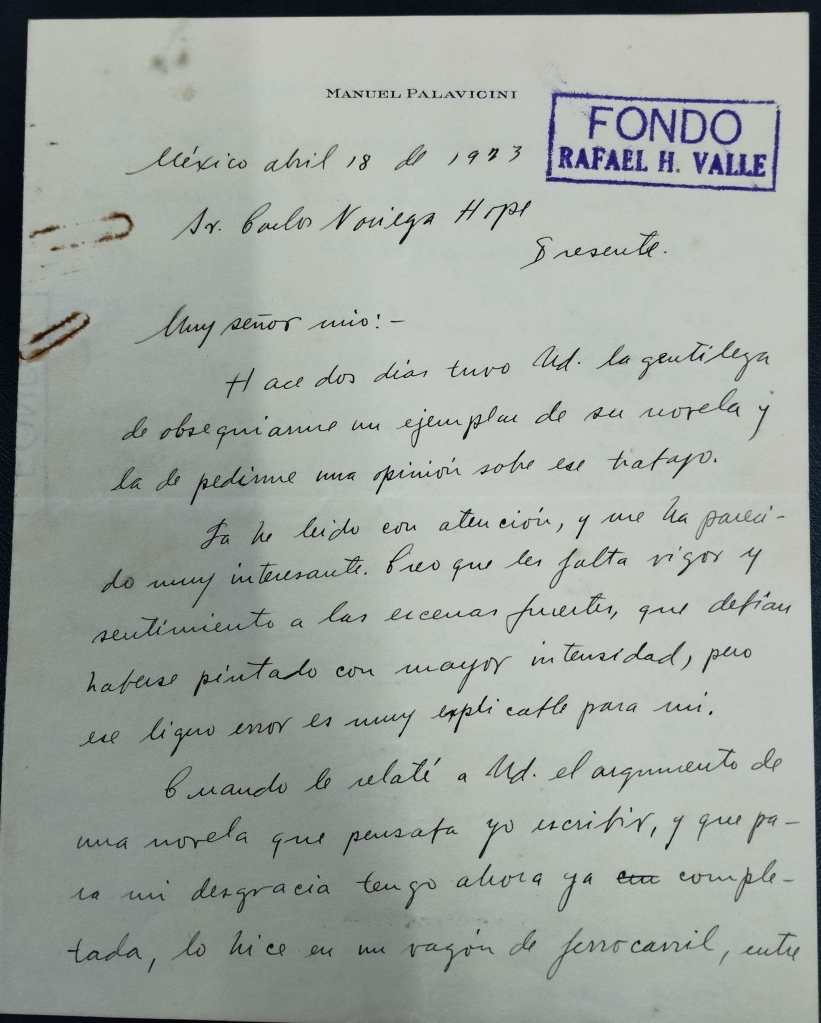 MANUEL PALAVICINI
FONDO
RAFAEL H. VALLE
México abril 18 de 1923
Sr. Carlos Noriega Hope
Presente.
Muy señor mio:-
Hace dos dias tuvo Ud. la gentileza
de obsequiarme un ejemplar de su novela y
la de pedirme una opinión sobre ese trabajo.
La he leido con atención, y me ha pareci-
do muy interesante. Creo que les falta vigor y
sentimiento a las escenas fuertes, que debían
haberse pintado con mayor intensidad, pero
ese ligero error es muy explicable para mi.
Cuando le relaté a Ud. el argumento de
una novela que pensaba yo escribir, y que pa-
ra mi desgracia tengo ahora ya comple-
tada, lo hice en un vagón de ferrocarril, entre